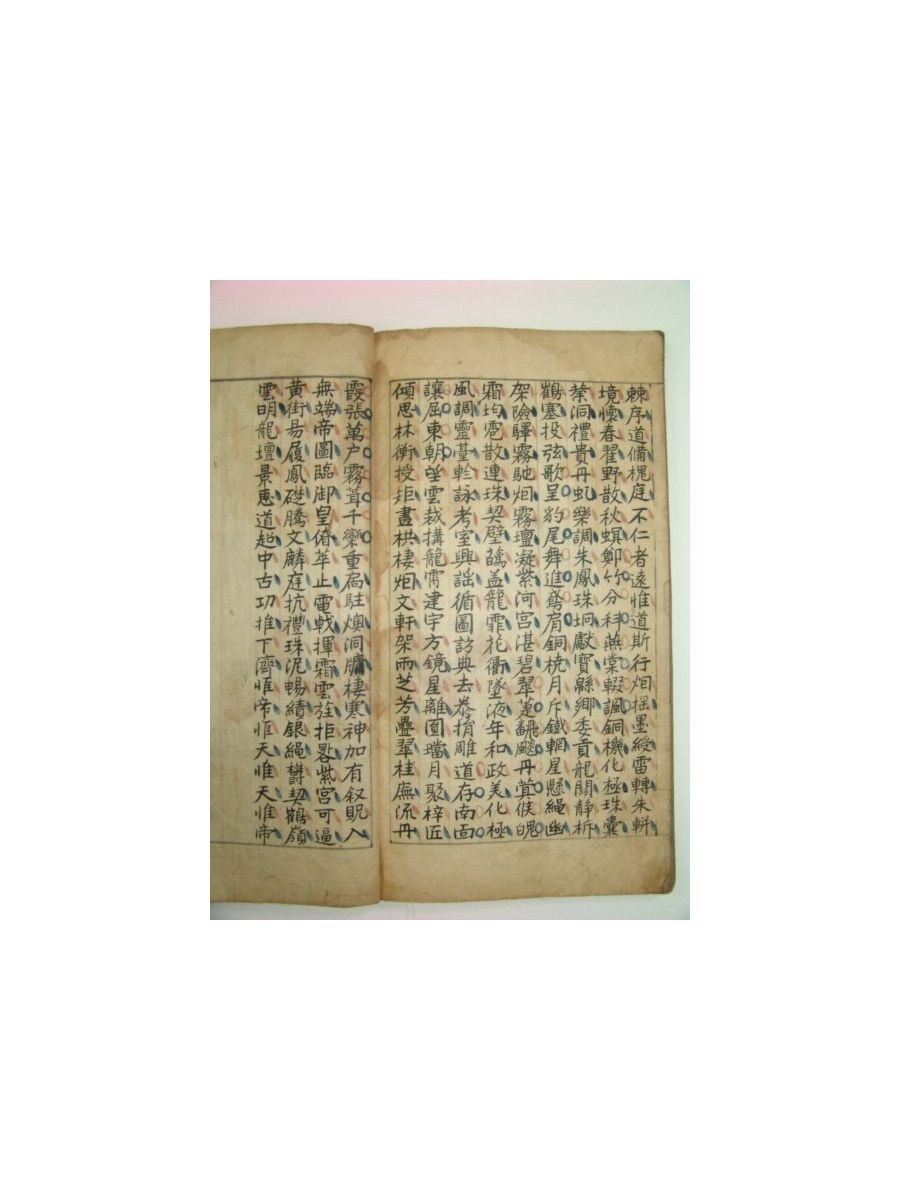 棘序道備槐庭不仁者遠惟道斯行炯楹墨綬雷轉朱軿
境懷春翟野散秋螟鄭竹分科燕棠輟諷銅機化極珠囊
蔡洞禮貴丹虬樂調朱鳳珠垌獻寶縣鄉委貢龍關靜柝
鶴塞投弦歌呈豹尾舞進鳶肩銅橈月斥鐵輞星懸繩幽
架險驛霧馳炯霧壇凝紫河宮湛碧翠萐翻飈丹蓂候魄
霜均雹散連珠契壁䕫盖籠霏花衢墜液年和政美化極
風調靈臺軫詠考室興謠循圖訪典去泰捐雕道存南面
讓屈東朝望雲裁搆籠霄建宇方鏡星離圓璫月聚梓匠
傾思林衡授矩畫栱棲炯文軒架雨芝芳疊翠桂廡流丹
霞張萬戶霧葺千欒重扃駐燠洞牖棲寒神加有叙貺入
無端帝圖臨御皇僚萃止電戟揮霜雲旌拒晷紫宮可逼
黃街易履鳳礎騰文麟庭抗禮珠泥暢績銀繩欝契鶴嶺
雲明龍壇景惠道超中古功推下濟惟帝惟天惟天惟帝